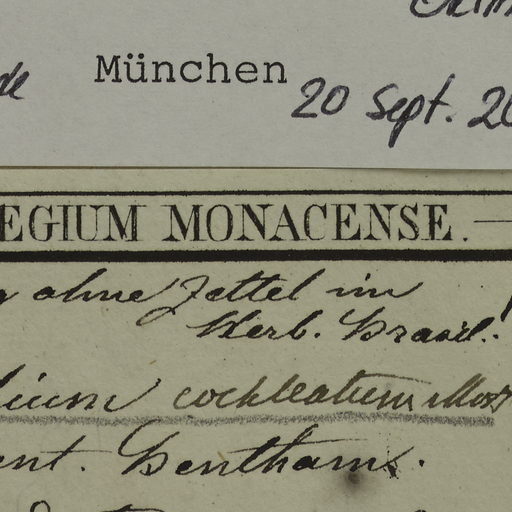 München
20 Sept. 20
EGIUM MONACENSE.
ohne Zettel im
Herb. Brasil.!
cochleatum Mart
ent. Bentham.